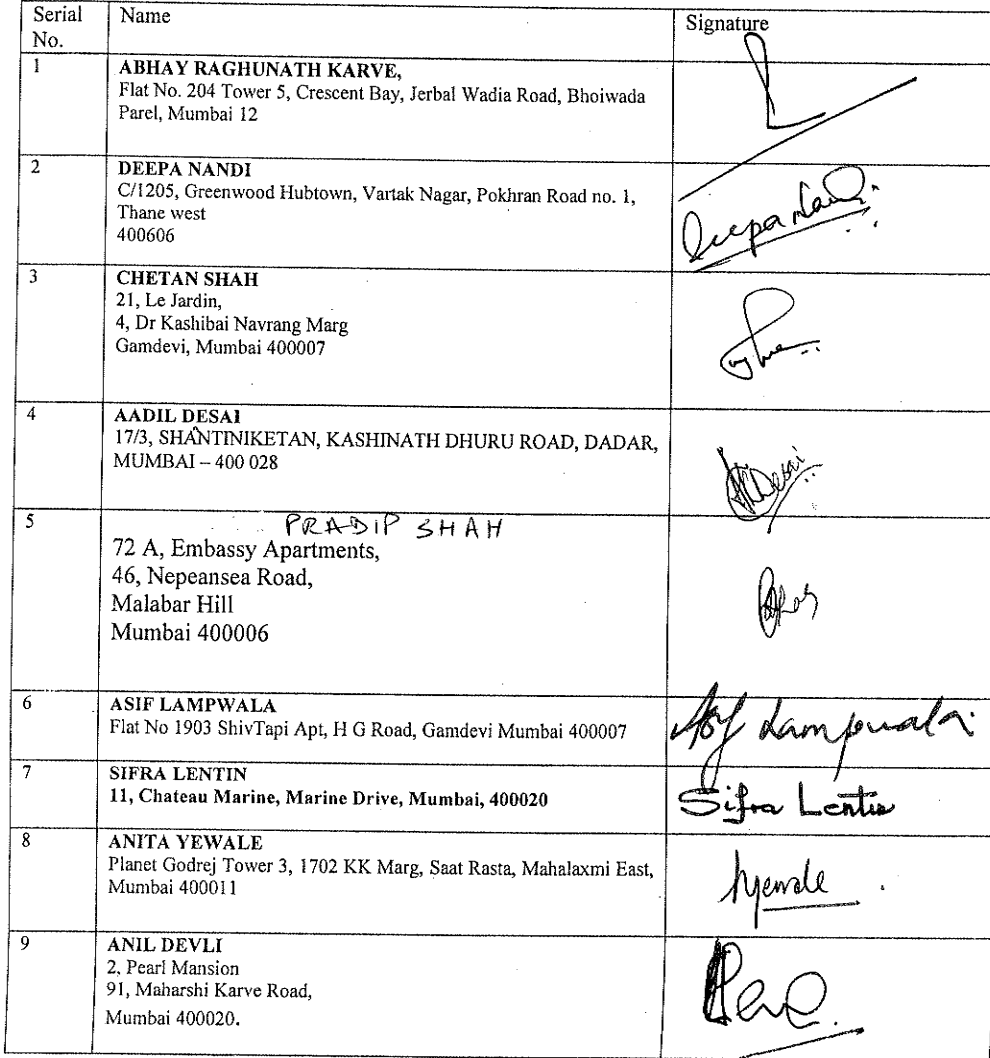 Serial
No.
Name
Signature
1
ABHAY RAGHUNATH KARVE,
Flat No. 204 Tower 5, Crescent Bay, Jerbal Wadia Road, Bhoiwada
Parel, Mumbai 12
2
DEEPA NANDI
C/1205, Greenwood Hubtown, Vartak Nagar, Pokhran Road no. 1,
Thane west
400606
Deepa Nandi
3
CHETAN SHAH
21, Le Jardin,
4, Dr Kashibai Navrang Marg
Gamdevi, Mumbai 400007
4
AADIL DESAI
17/3, SHANTINIKETAN, KASHINATH DHURU ROAD, DADAR,
MUMBAI – 400 028
Desai
5
PRADIP SHAH
72 A, Embassy Apartments,
46, Nepeansea Road,
Malabar Hill
Mumbai 400006
6
ASIF LAMPWALA
Flat No 1903 ShivTapi Apt, H G Road, Gamdevi Mumbai 400007
Asif Lampwala
7
SIFRA LENTIN
11, Chateau Marine, Marine Drive, Mumbai, 400020
Sifra Lentin
8
ANITA YEWALE
Planet Godrej Tower 3, 1702 KK Marg, Saat Rasta, Mahalaxmi East,
Mumbai 400011
Ayewale
9
ANIL DEVLI
2, Pearl Mansion
91, Maharshi Karve Road,
Mumbai 400020.